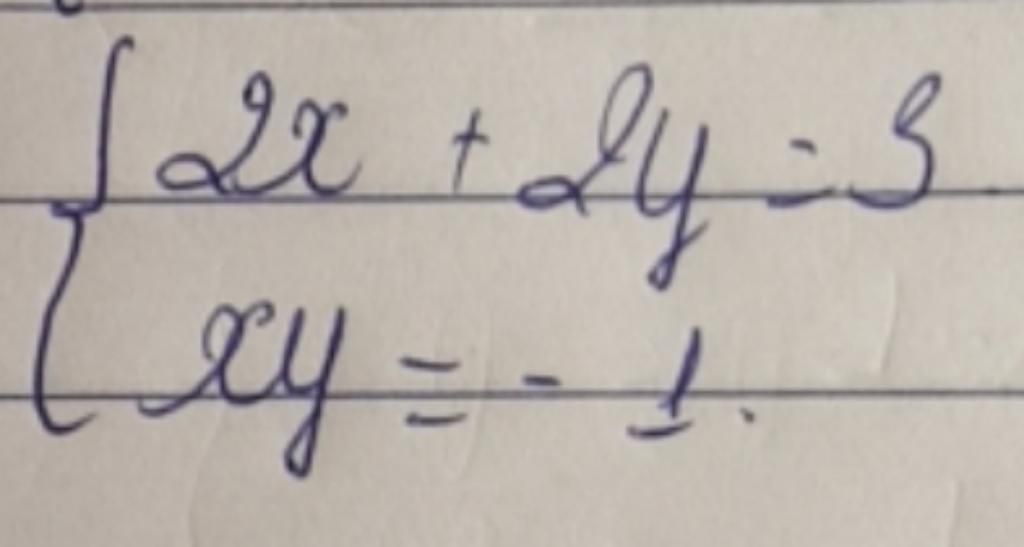 2x + 2y = 3
xy = - 1.